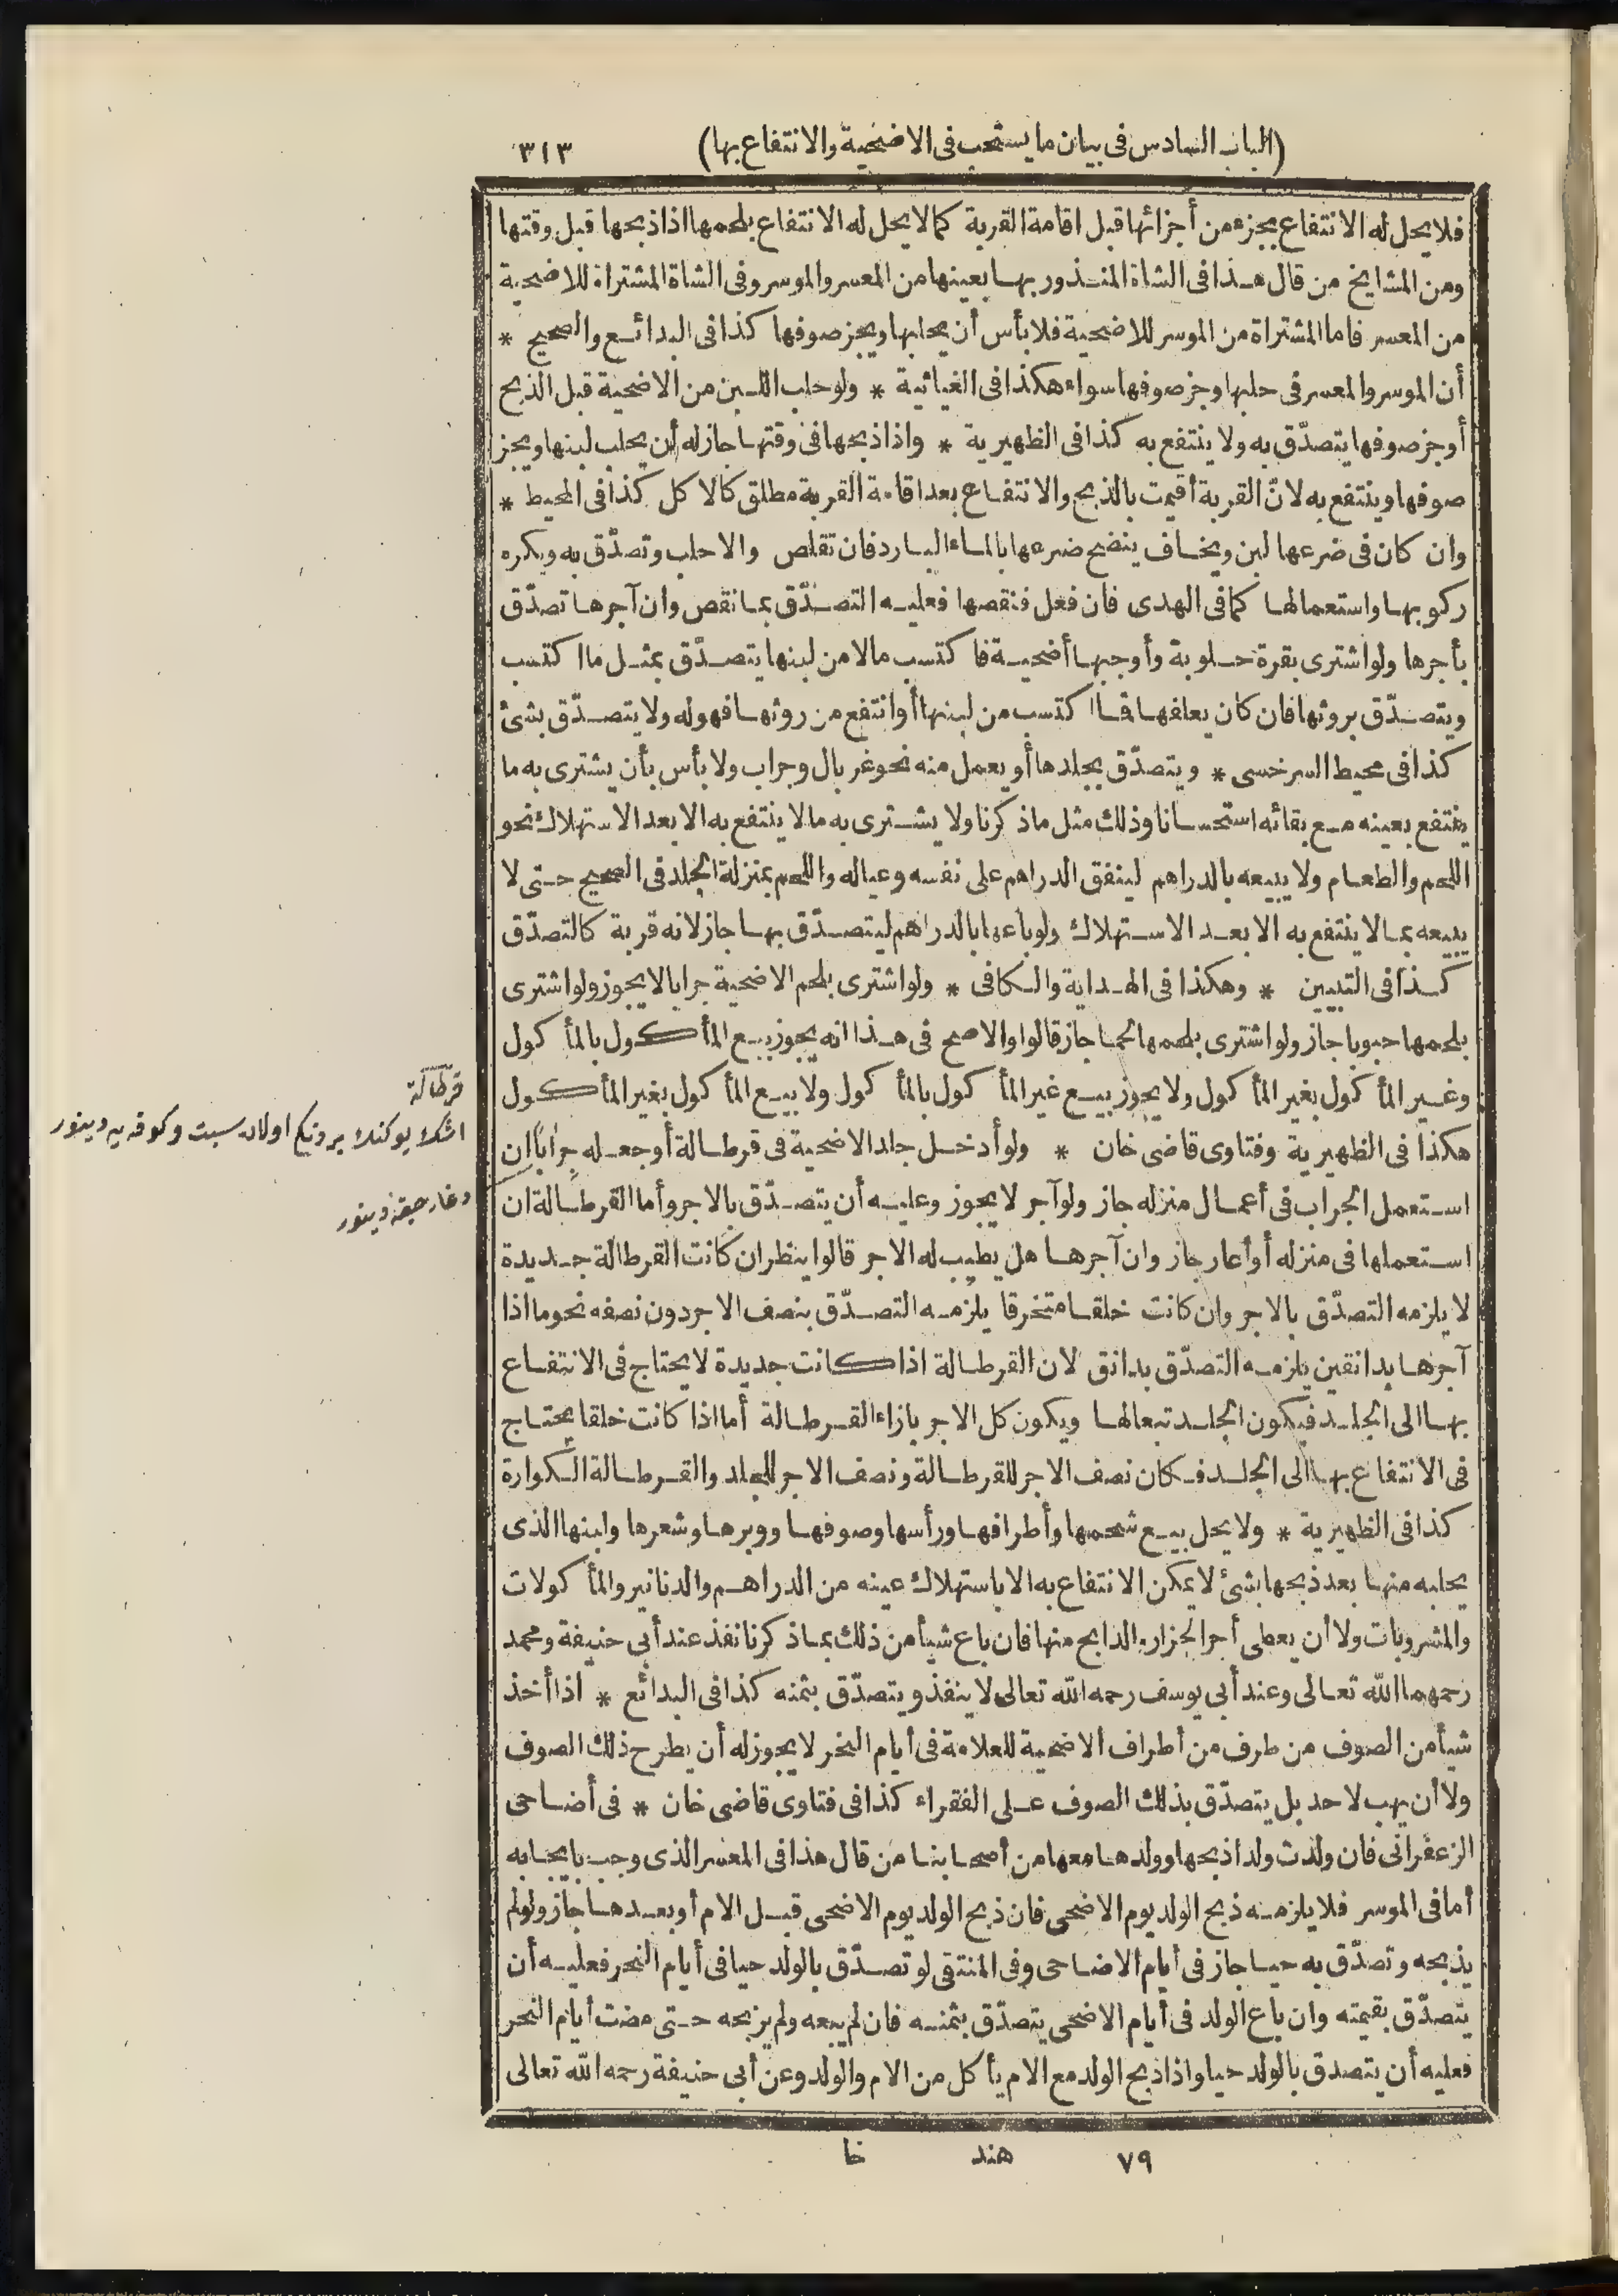 (الباب السادس فى بيان ما يستحب فى الاضحية والانتفاع بها) ٣١٣
فلا يحل له الانتفاع بجزء من أجزائها قبل اقامة القربة كما لا يحل له الانتفاع بلحمها اذا ذبحها قبل وقتها
ومن المشايخ من قال هذا فى الشاة المنذور بها بعينها من المعسر والموسر وفى الشاة المشتراة للاضحية
من المعسر فاما المشتراة من الموسر للاضحية فلا بأس أن يحلبها ويجز صوفها كذا فى البدائع والصحيح *
أن الموسر والمعسر فى حلبها وجز صوفها سواء هكذا فى الغياثية * ولو حلب اللبن من الاضحية قبل الذبح
أو جز صوفها يتصدّق به ولا ينتفع به كذا فى الظهيرية * واذا ذبحها فى وقتها جاز له أن يحلب لبنها ويجز
صوفها وينتفع به لانّ القربة أقيمت بالذبح والانتفاع بعد اقامة القربة مطلق كالاكل كذا فى المحيط *
وان كان فى ضرعها لبن ويخاف ينضح ضرعها بالماء البارد فان تقلص والا حلب وتصدّق به ويكره
ركوبها واستعمالها كما فى الهدى فان فعل فنقصها فعليه التصدّق بما نقص وان آجرها تصدّق
بأجرها ولو اشترى بقرة حلوبة وأوجبها أضحية فاكتسب مالا من لبنها يتصدّق بمثل ما اكتسب
ويتصدّق بروثها فان كان يعلفها فما اكتسب من لبنها أو انتفع من روثها فهو له ولا يتصدّق بشئ
كذا فى محيط السرخسى * ويتصدّق بجلدها أو يعمل منه نحو غربال وجراب ولا بأس بأن يشترى به ما
ينتفع بعينه مع بقائه استحسانا وذلك مثل ما ذكرنا ولا يشترى به ما لا ينتفع به الا بعد الاستهلاك نحو
اللحم والطعام ولا يبيعه بالدراهم لينفق الدراهم على نفسه وعياله واللحم بمنزلة الجلد فى الصحيح حتى لا
يبيعه بما لا ينتفع به الا بعد الاستهلاك ولو باعها بالدراهم ليتصدّق بها جاز لانه قربة كالتصدّق
كذا فى التبيين * وهكذا فى الهداية والكافى * ولو اشترى بلحم الاضحية جرابا لا يجوز ولو اشترى
بلحمها حبوبا جاز ولو اشترى بلحمها لحما جاز قالوا والاصح فى هذا انه يجوز بيع المأكول بالمأكول
وغير المأكول بغير المأكول ولا يجوز بيع غير المأكول بالمأكول ولا بيع المأكول بغير المأكول
هكذا فى الظهيرية وفتاوى قاضى خان * ولو أدخل جلد الاضحية فى قرطالة أو جعله جرابا ان
استعمل الجراب فى أعمال منزله جاز ولو آجر لا يجوز وعليه أن يتصدّق بالاجر وأما القرطالة ان
استعملها فى منزله أو أعار جاز وان آجرها هل يطيب له الاجر قالوا ينظر ان كانت القرطالة جديدة
لا يلزمه التصدّق بالاجر وان كانت خلقا متخرقا يلزمه التصدّق بنصف الاجر دون نصفه نحو ما اذا
آجرها بدانقين يلزمه التصدّق بدانق لان القرطالة اذا كانت جديدة لا يحتاج فى الانتفاع
بها الى الجلد فيكون الجلد تبعا لها ويكون كل الاجر بازاء القرطالة أما اذا كانت خلقا يحتاج
فى الانتفاع بها الى الجلد فكان نصف الاجر للقرطالة ونصف الاجر للجلد والقرطالة الكوارة
كذا فى الظهيرية * ولا يحل بيع شحمها وأطرافها ورأسها وصوفها ووبرها وشعرها ولبنها الذى
يحلبه منها بعد ذبحها بشئ لا يمكن الانتفاع به الا باستهلاك عينه من الدراهم والدنانير والمأكولات
والمشروبات ولا أن يعطى أجر الجزار والذابح منها فان باع شيأ من ذلك بما ذكرنا نفذ عند أبى حنيفة ومحمد
رحمهما اللّه تعالى وعند أبى يوسف رحمه اللّه تعالى لا ينفذ ويتصدّق بثمنه كذا فى البدائع * اذا أخذ
شيأ من الصوف من طرف من أطراف الاضحية للعلامة فى أيام النحر لا يجوز له أن يطرح ذلك الصوف
ولا أن يهب لاحد بل يتصدّق بذلك الصوف على الفقراء كذا فى فتاوى قاضى خان * فى أضاحى
الزعفرانى فان ولدت ولدا ذبحها وولدها معها من أصحابنا من قال هذا فى المعسر الذى وجب بايجابه
أما فى الموسر فلا يلزمه ذبح الولد يوم الاضحى فان ذبح الولد يوم الاضحى قبل الام أو بعدها جاز ولو لم
يذبحه وتصدّق به حيا جاز فى أيام الاضاحى وفى المنتقى لو تصدّق بالولد حيا فى أيام النحر فعليه أن
يتصدّق بقيمته وان باع الولد فى أيام الاضحى يتصدّق بثمنه فان لم يبعه ولم يذبحه حتى مضت أيام النحر
فعليه أن يتصدق بالولد حيا واذا ذبح الولد مع الام يأكل من الام والولد وعن أبى حنيفة رحمه اللّه تعالى
٧٩ هند خا
قرطالة
سبت وكوفه يه دينور
دينور